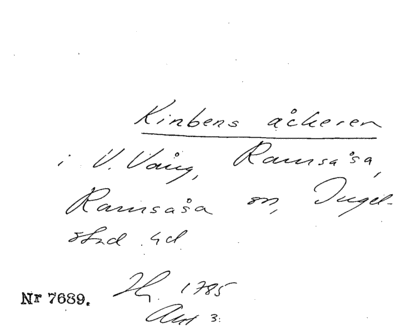 Kinbens åckeren
i V. Vång, Ramsåsa,
Ramsåsa sn, Ingel-
stad hd.
Nr 7689. 1785
3.